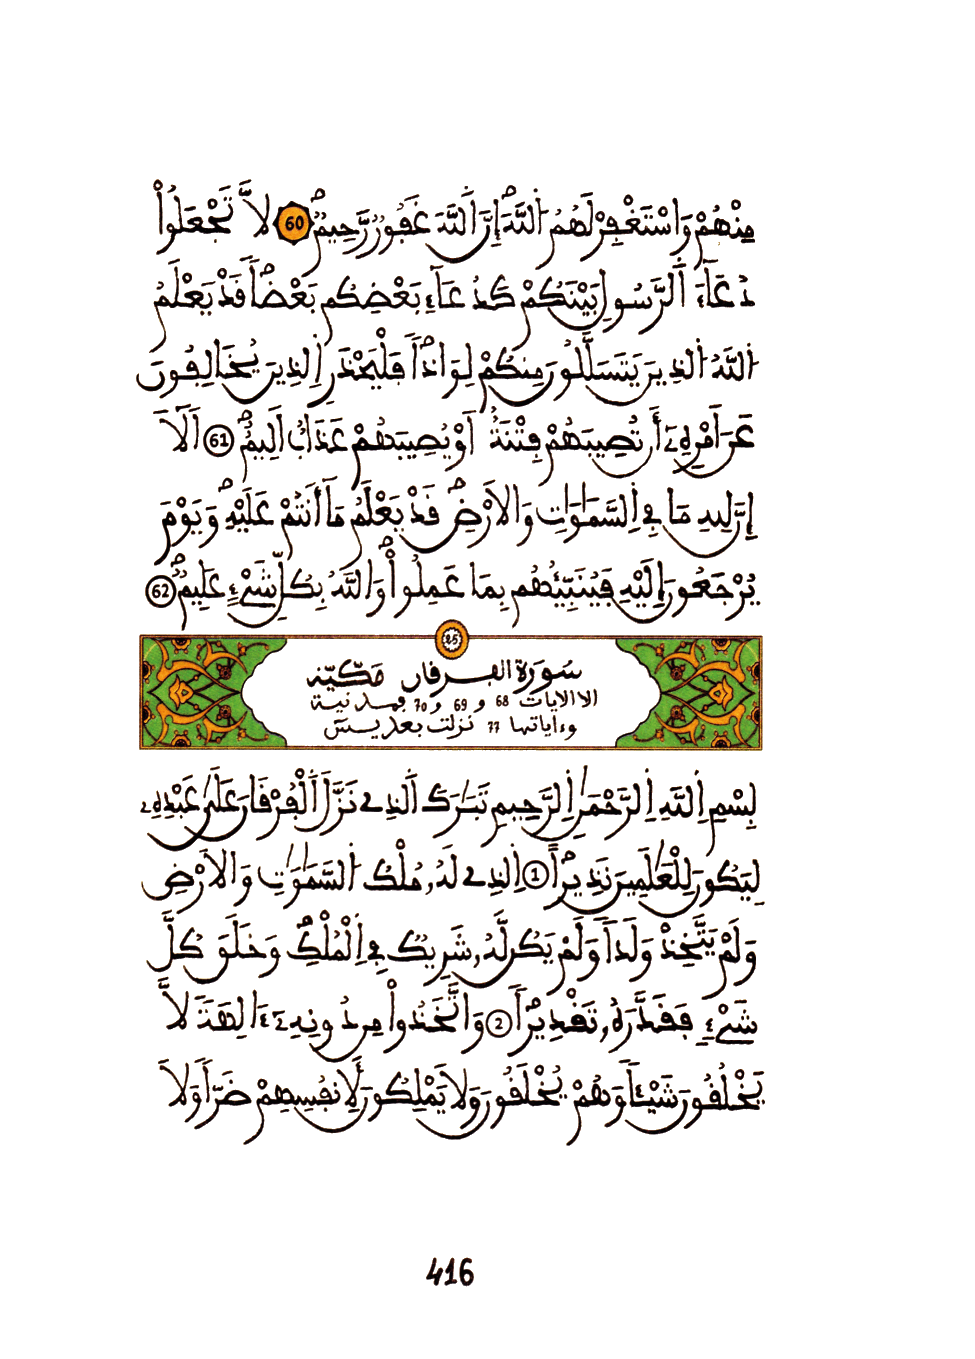 مِنْهُمْ وَاسْتَغْفِرْ لَهُمُ اللَّهَ إِنَّ اللَّهَ غَفُورٌ رَّحِيمٌ 60 لَّا تَجْعَلُوا
دُعَآءَ الرَّسُولِ بَيْنَكُمْ كَدُعَآءِ بَعْضِكُم بَعْضًا قَدْ يَعْلَمُ
اللَّهُ الذِينَ يَتَسَلَّلُونَ مِنكُمْ لِوَاذًا فَلْيَحْذَرِ الذِينَ يُخَالِفُونَ
عَنَ اَمْرِهِ أَن تُصِيبَهُمْ فِتْنَةٌ اَوْ يُصِيبَهُمْ عَذَابٌ اَلِيمٌ 61 أَلَآ
إِنَّ لِلهِ مَا فِي السَّمَٰوَٰتِ وَالَارْضِ قَدْ يَعْلَمُ مَآ أَنتُمْ عَلَيْهِ وَيَوْمَ
يُرْجَعُونَ إِلَيْهِ فَيُنَبِّئُهُم بِمَا عَمِلُوا وَاللَّهُ بِكُلِّ شَيْءٍ عَلِيمٌ 62
25
سُورَة الفرقان مَكّيّة
الا الايات 68 و 69 و 70 فمدنية
وءاياتها 77 نزلت بعد يس
بِسْمِ اللَّهِ الرَّحْمَٰنِ الرَّحِيمِ تَبَٰرَكَ الَّذِي نَزَّلَ الْفُرْقَانَ عَلَىٰ عَبْدِهِ
لِيَكُونَ لِلْعَٰلَمِينَ نَذِيرًا 1 الذِي لَهُ مُلْكُ السَّمَٰوَٰتِ وَالَارْضِ
وَلَمْ يَتَّخِذْ وَلَدًا وَلَمْ يَكُن لَّهُ شَرِيكٌ فِي الْمُلْكِ وَخَلَقَ كُلَّ
شَيْءٍ فَقَدَّرَهُ تَقْدِيرًا 2 وَاتَّخَذُوا مِن دُونِهِ ءَالِهَةً لَّا
يَخْلُقُونَ شَيْئًا وَهُمْ يُخْلَقُونَ وَلَا يَمْلِكُونَ لِأَنفُسِهِمْ ضَرًّا وَلَا
416